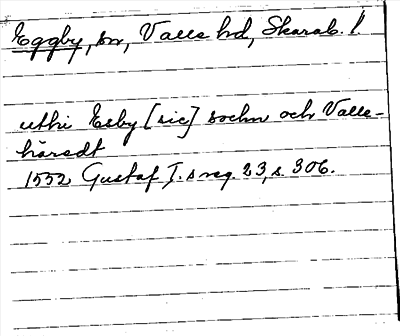 Eggby, sn, Valle hd, Skarab. l
uthi Eeby [sic] sochn och Valle-
häredt
1552 Gustaf I:s reg. 23, s. 306.